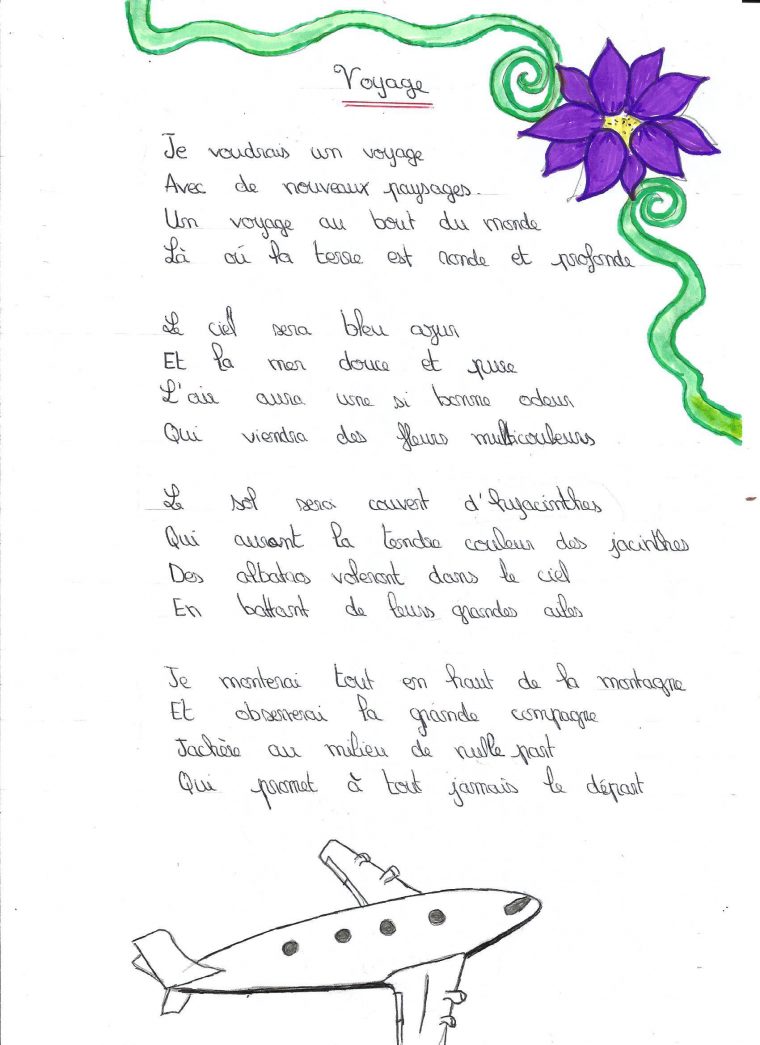 Voyage
Je voudrais un voyage
Avec de nouveaux paysages.
Un voyage au bout du monde
Là où la terre est ronde et profonde
Le ciel sera bleu azur
Et la mer douce et pure
L'air aura une si bonne odeur
Qui viendra des fleurs multicouleurs
Le sol sera couvert d'hyjacinthes
Qui auront la tendre couleur des jacinthes
Des albatros voleront dans le ciel
En battant de leurs grandes ailes
Je monterai tout en haut de la montagne
Et observerai la grande compagne
Jachère au milieu de nulle part
Qui promet à tout jamais le départ